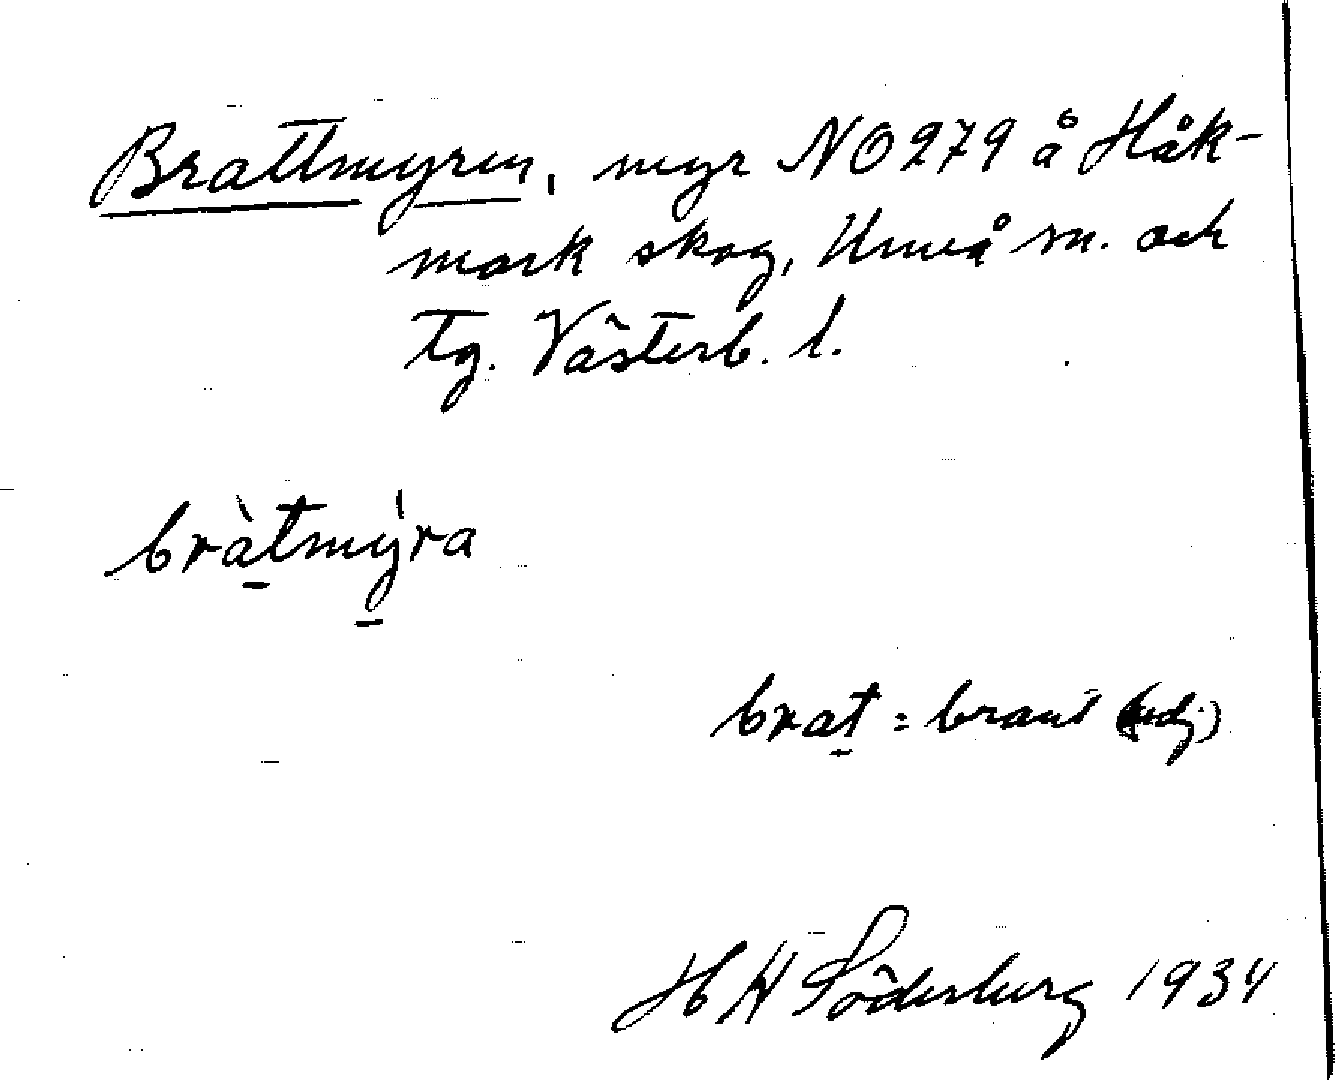 Brattmyren, myr NO 279 å Håk-
mark skog, Umeå sn. och
tg. Västerb. l.
bràtmýra
brat = brant (adj.)
H H Söderberg 1934